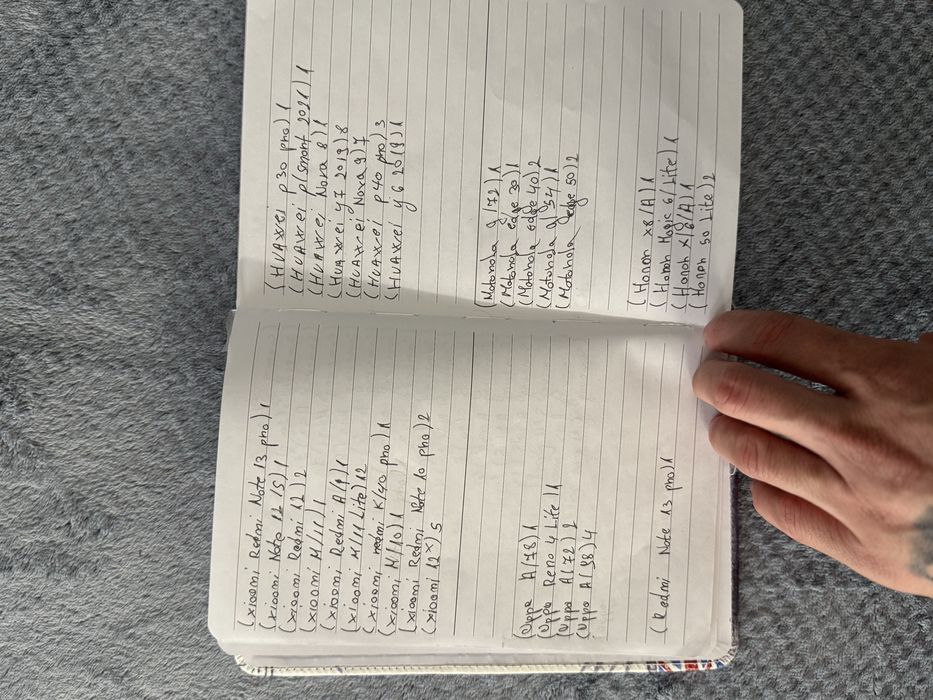 (xioomi Redmi Note 13 pho) 1
(xioomi Note 12 15) 1
(xioomi Redmi 12) 2
(xioomi M/11) 1
(xioomi Redmi A/9) 1
(xioomi M/11 Lite) 12
(xioomi redmi K/40 pho) 1
(xioomi M/10) 1
(xioomi Redmi Note 10 pho) 2
(xioomi 12x) 5
(Oppo A(78) 1
(Oppo Reno 4 Lite) 1
(Oppo A(72) 2
(Oppo A(98) 4
(Redmi Note 13 pho) 1
(HUAwei p30 pho) 1
(HUAwei p(smart 2021) 1
(HUAwei Nova 8) 1
(HUAwei y7 2019) 8
(HUAwei Nova 9) 7
(HUAwei p40 pho) 3
(HUAwei y6 2019) 1
(Motorola g(72) 1
(Motorola edge 30) 1
(Motorola edge 40) 2
(Motorola g 54) 1
(Motorola edge 50) 2
(Honoh x8/A) 1
(Honoh Magic 6 Lite) 1
(Honoh x/8/A) 1
(Honoh 50 Lite) 2